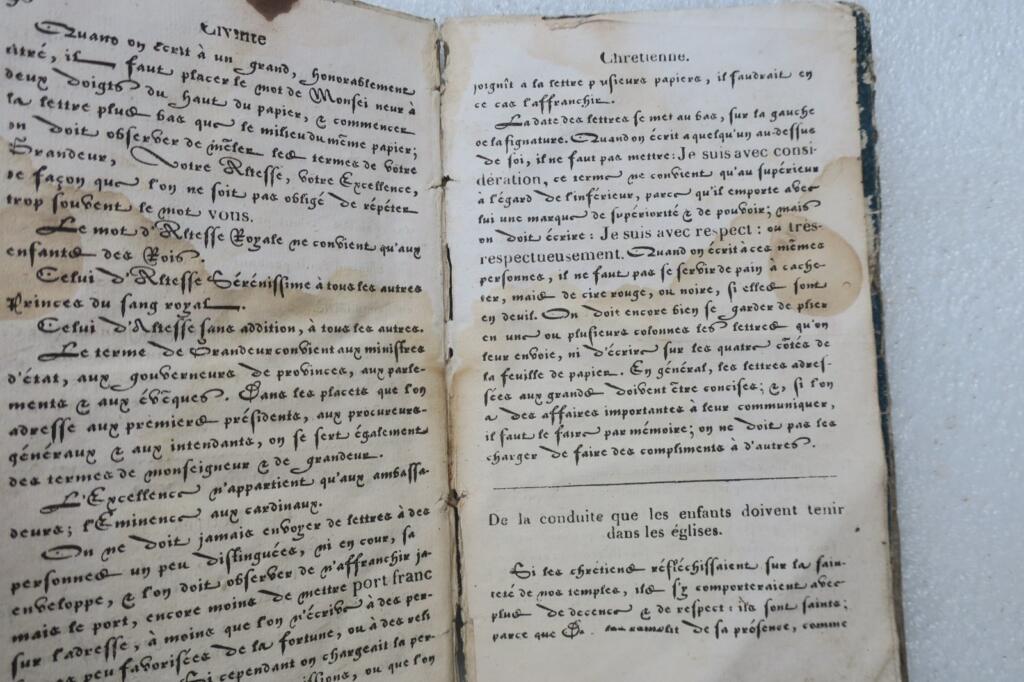 Civilité
Quand on écrit à un grand, honorablement
titré, il faut placer le mot de Monsei neur à
deux doigts du haut du papier, & commencer
la lettre plus bas que le milieu du même papier;
on doit observer de mêler les termes de votre
Grandeur, Votre Altesse, votre Excellence,
de façon que l'on ne soit pas obligé de répéter
trop souvent le mot vous.
Le mot d'Altesse Royale ne convient qu'aux
enfants des Rois.
Celui d'Altesse Sérénissime à tous les autres
Princes du sang royal.
Celui d'Altesse sans addition, à tous les autres.
Le terme de Grandeur convient aux ministres
d'état, aux gouverneurs de provinces, aux parle-
ments & aux évêques. Dans les placets que l'on
adresse aux premiers présidents, aux procureurs-
généraux & aux intendants, on se sert également
des termes de monseigneur & de grandeur.
L'Excellence n'appartient qu'aux ambassa-
deurs; l'Éminence aux cardinaux.
On ne doit jamais envoyer de lettres à des
personnes un peu distinguées, ni en cour, sa
enveloppe, & l'on doit observer de n'affranchir ja-
mais le port, encore moins de mettre port franc
sur l'adresse, à moins que l'on n'écrive à des per-
peu favorisées de la fortune, ou à des reli
Si cependant on chargeait la per-
ou que l'on
Chretienne.
joignît a la lettre p usieurs papiers, il faudrait en
ce cas l'affranchir.
La date des lettres se met au bas, sur la gauche
de la signature. Quand on écrit a quelqu'un au-dessus
de soi, il ne faut pas mettre: Je suis avec consi-
dération, ce terme ne convient qu'au supérieur
à l'égard de l'inférieur, parce qu'il emporte avec
lui une marque de supériorité & de pouvoir; mais
on doit écrire: Je suis avec respect: ou très-
respectueusement. Quand on écrit à ces mêmes
personnes, il ne faut pas se servir de pain à cache-
ter, mais de cire rouge, ou noire, si elles sont
en deuil. On doit encore bien se garder de plier
en une ou plusieurs colonnes les lettres qu'on
leur envoie, ni d'écrire sur les quatre côtés de
la feuille de papier. En général, les lettres adres-
sées aux grands doivent être concises; &, si l'on
a des affaires importantes à leur communiquer,
il faut le faire par mémoire; on ne doit pas les
charger de faire des compliments à d'autres.
De la conduite que les enfants doivent tenir
dans les églises.
Si les chrétiens réfléchissaient sur la sain-
teté de nos temples, ils s'y comporteraient avec
plus de decence & de respect: ils sont saints;
parce que de sa présence, comme